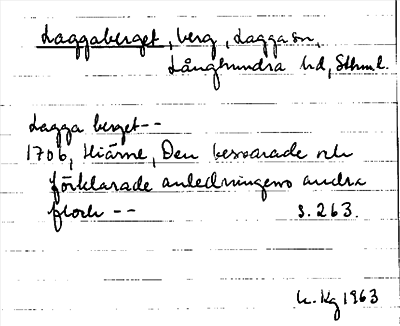 Laggaberget, berg, Lagga sn,
Långhundra hd, Sthm l.
Lagga berget--
1706, Hiärne, Den besvarade och
förklarade anledningens andra
flock -- s. 263.
Kg 1963